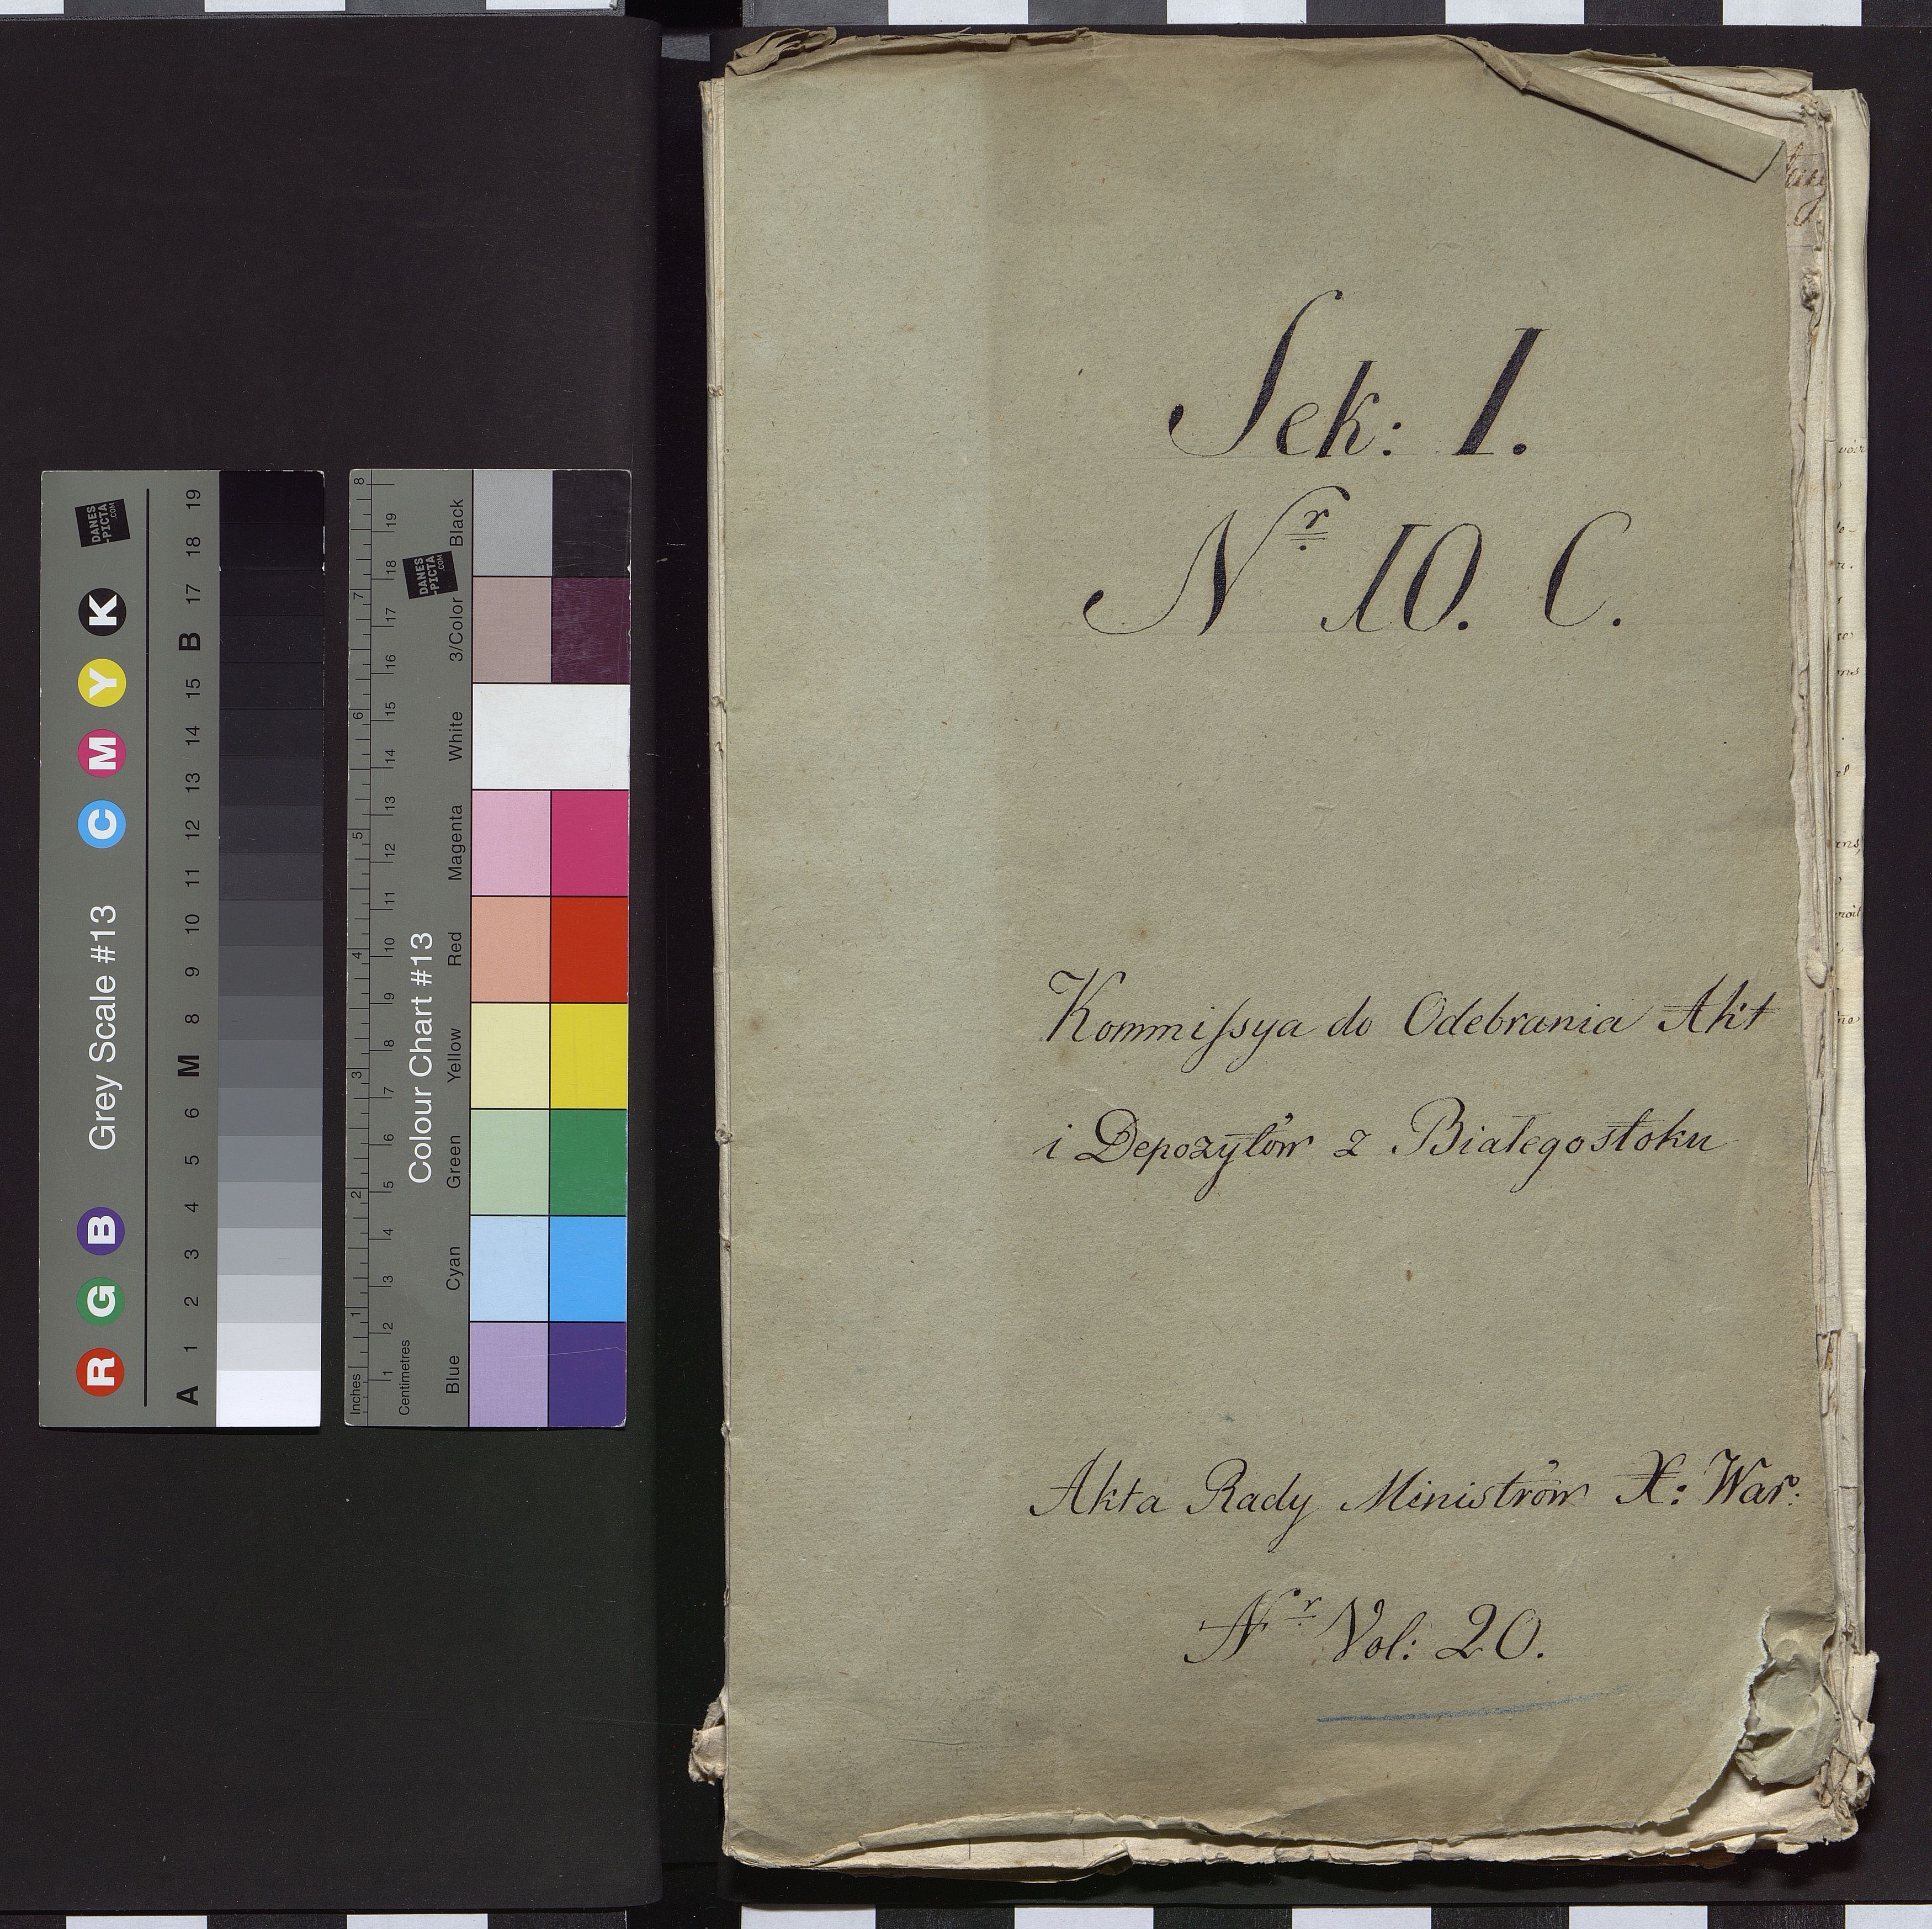 Sek: I.
Nr 10. C.
Kommissya do Odebrania Akt
i Depozytów z Białegostoku
Akta Rady Ministrów X: War:
Nr Vol: 20.
Grey Scale #13
R G B C M Y K
A 1 2 3 4 5 6 M 8 9 10 11 12 13 14 15 B 17 18 19
DANES
-PICTA
.COM
Colour Chart #13
DANES
-PICTA
.COM
Inches 1 2 3 4 5 6 7 8
Centimetres 1 2 3 4 5 6 7 8 9 10 11 12 13 14 15 16 17 18 19
Blue Cyan Green Yellow Red Magenta White 3/Color Black